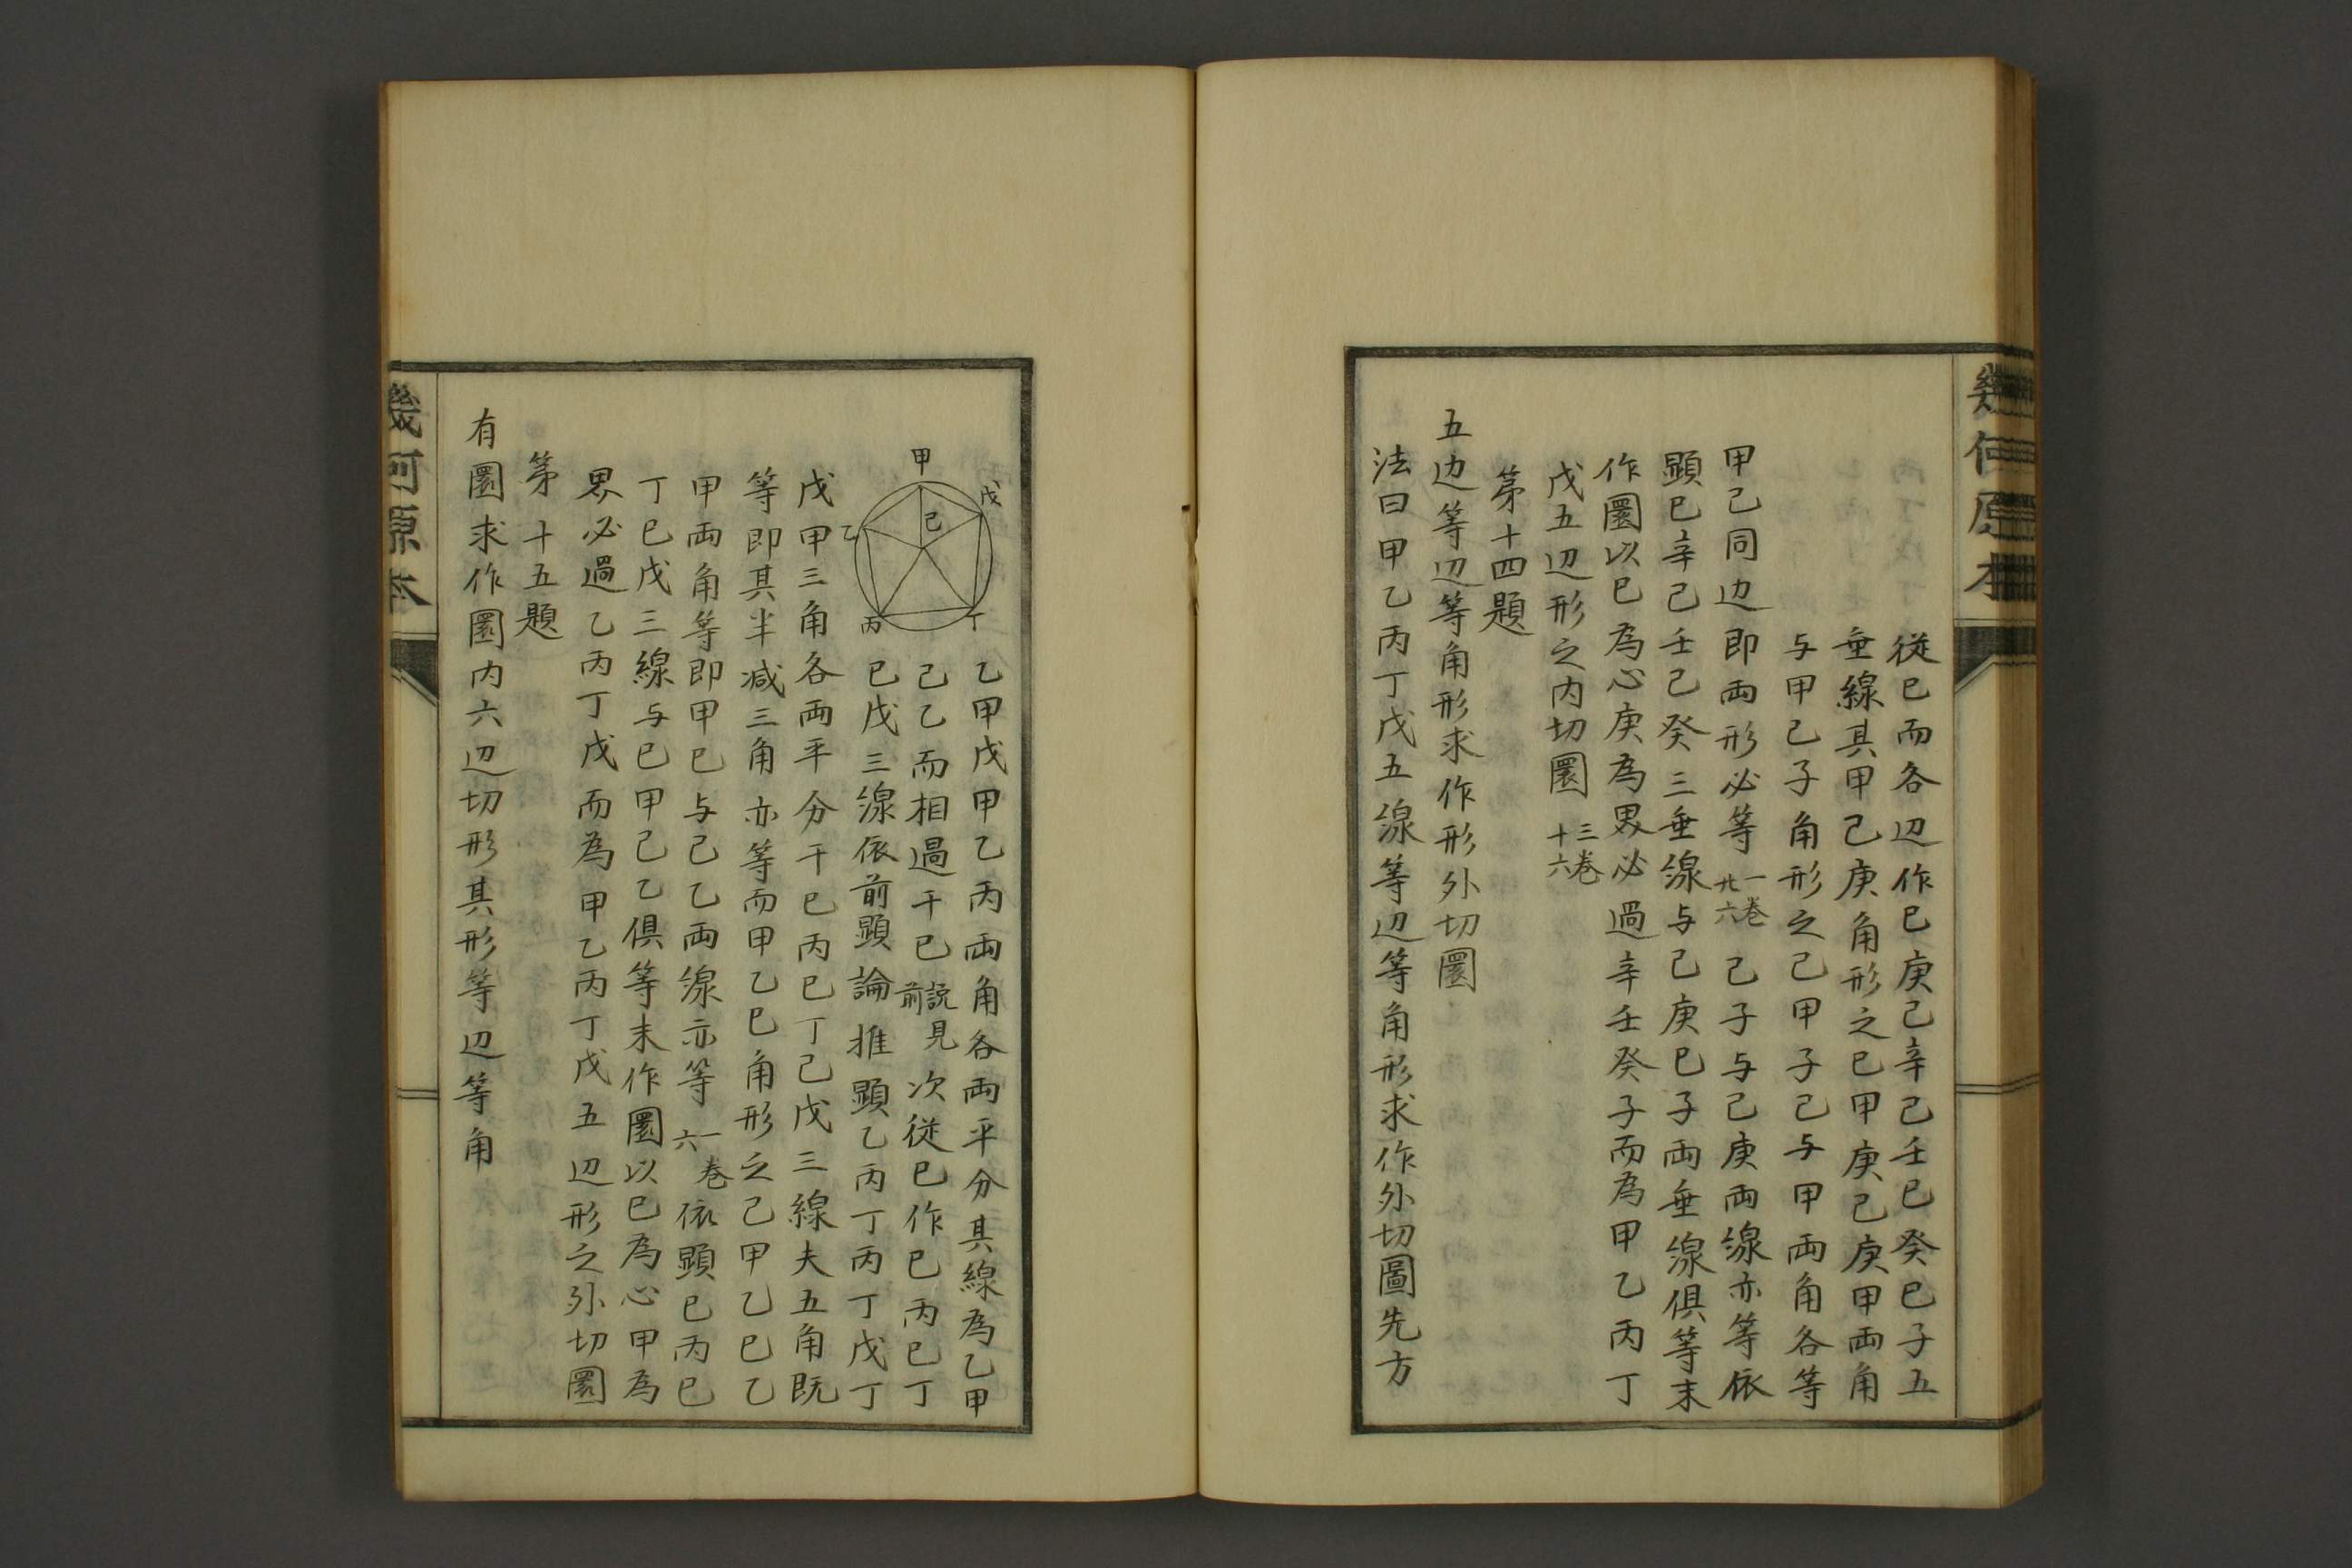 幾何原本
従巳而各辺作巳庚己辛己壬巳癸巳子五
垂線其甲己庚角形之巳甲庚己庚甲両角
与甲己子角形之己甲子己与甲両角各等
甲己同边即両形必等一卷廿六己子与己庚両線亦等依
顕巳辛己壬己癸三垂線与己庚巳子両垂線俱等末
作圜以巳為心庚為界必過辛壬癸子而為甲乙丙丁
戊五辺形之内切圜三卷十六
第十四題
五边等辺等角形求作形外切圜
法曰甲乙丙丁戊五線等辺等角形求作外切圖先方
乙甲戊甲乙丙両角各両平分其線為乙甲
己乙而相過干巳説見前次従巳作巳丙巳丁
巳戊三線依前顕論推顕乙丙丁丙丁戊丁
戊甲三角各両平分干巳丙巳丁己戊三線夫五角既
等即其半减三角亦等而甲乙巳角形之己甲乙巳乙
甲両角等即甲巳与己乙両線亦等一卷六依顕巳丙巳
丁巳戊三線与巳甲己乙俱等末作圜以巳為心甲為
界必過乙丙丁戊而為甲乙丙丁戊五辺形之外切圜
第十五題
有圜求作圜内六辺切形其形等辺等角
甲
戊
己
乙
丙
丁
幾何原本